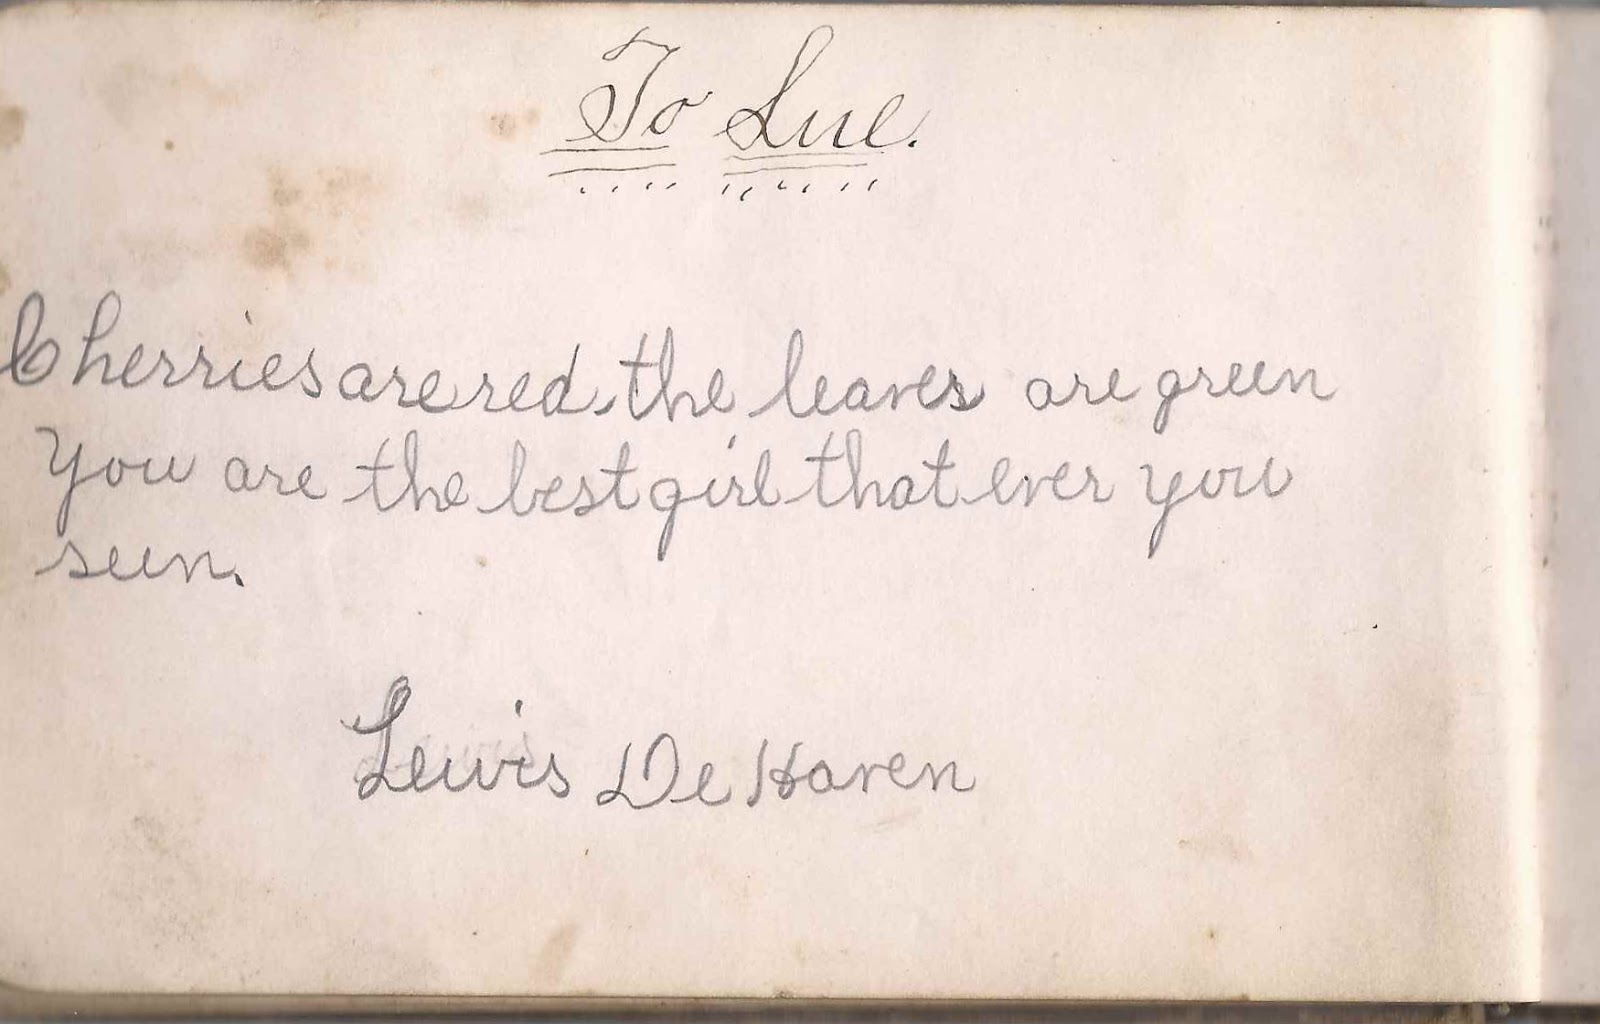 To Lue.
Cherries are red, the leaves are green
You are the best girl that ever you
seen.
Lewis De Haven